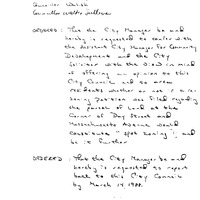 Councillor Walsh
Councillor Walter Sullivan
ORDERED: That the City Manager be and
hereby is requested to confer with
the Assistant City Manager for Community
Development and the City
Solicitor with the view in mind
of offering an opinion to this
City Council and to area
residents whether or not a re-
zoning petition was filed regarding
the parcel of land at the
Corner of Day Street and
Massachusetts Avenue would
constitute "spot zoning"; and
be it further
ORDERED: That the City Manager be and
hereby is requested to report
back to this City Council
by March 14, 1988.